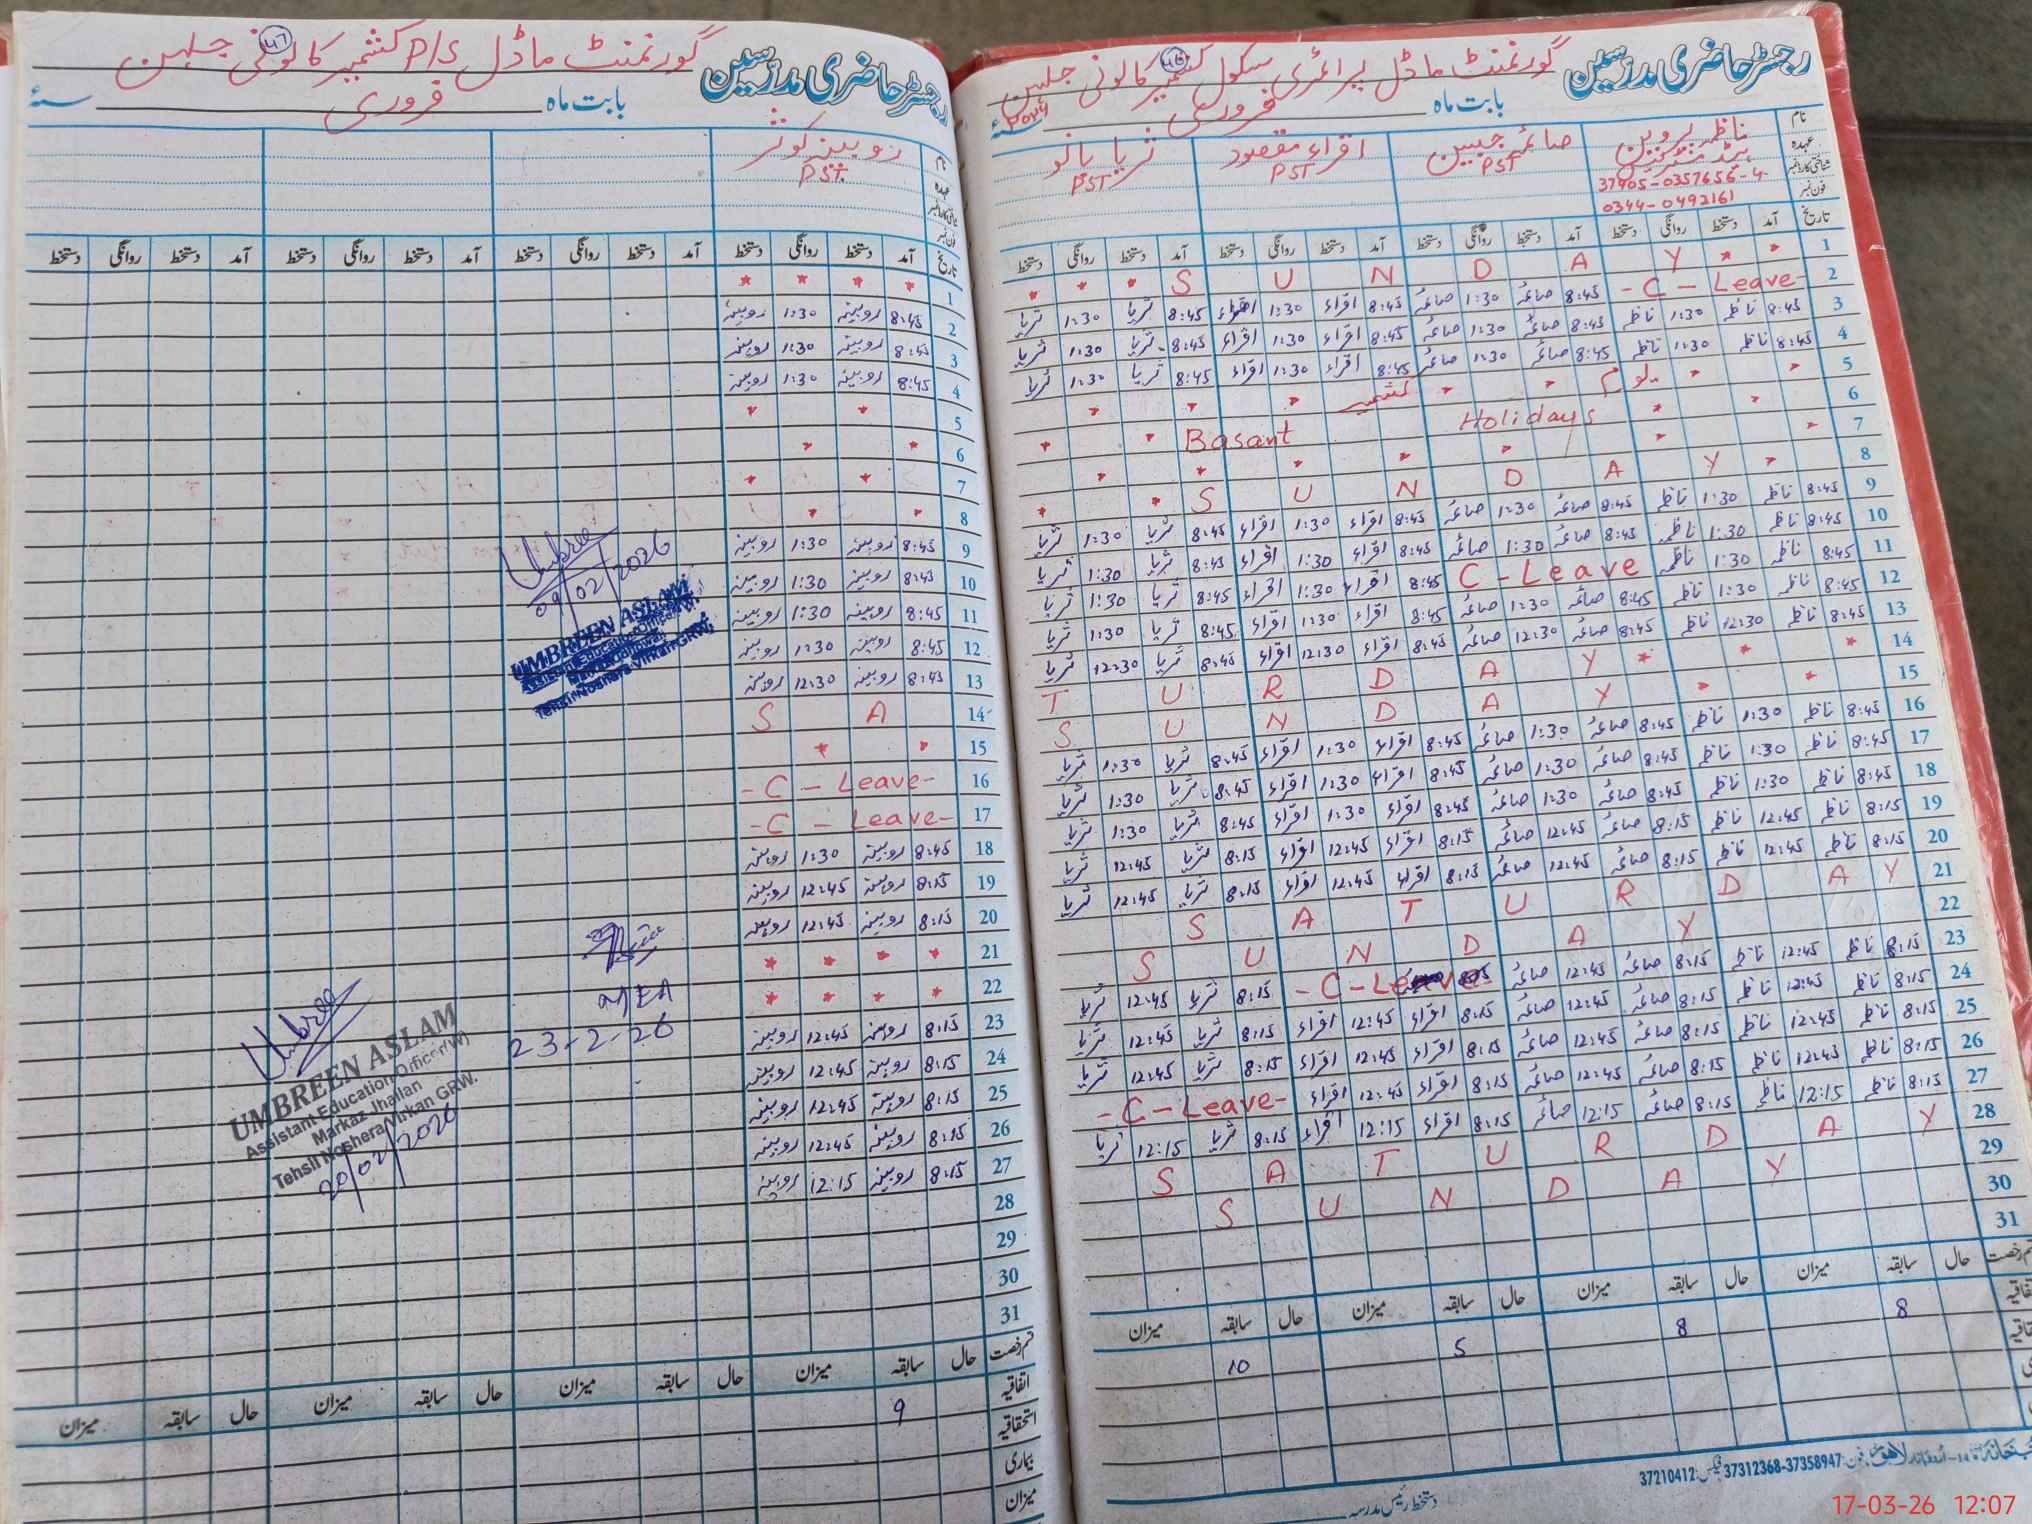 رجسٹر حاضری مدرسین گورنمنٹ ماڈل پرائمری سکول کشمیر کالونی جلہن
بابت ماہ فروری
نام ناظمہ پروین صائمہ جبین اقراء مقصود ثریا بانو
عہدہ ہیڈ مسٹریس PST PST PST
شناختی کارڈ نمبر 37405-0357656-4
فون نمبر 0344-0492161
تاریخ آمد دستخط روانگی دستخط آمد دستخط روانگی دستخط آمد دستخط روانگی دستخط آمد دستخط روانگی دستخط
1 S U N D A Y
2 -C-Leave- 8:45 صائمہ 1:30 صائمہ 8:45 اقراء 1:30 اقراء 8:45 ثریا 1:30 ثریا
3 8:45 ناظمہ 1:30 ناظمہ 8:45 صائمہ 1:30 صائمہ 8:45 اقراء 1:30 اقراء 8:45 ثریا 1:30 ثریا
4 8:45 ناظمہ 1:30 ناظمہ 8:45 صائمہ 1:30 صائمہ 8:45 اقراء 1:30 اقراء 8:45 ثریا 1:30 ثریا
5 یوم کشمیر
6 Basant Holidays
7
8 S U N D A Y
9 8:45 ناظمہ 1:30 ناظمہ 8:45 صائمہ 1:30 صائمہ 8:45 اقراء 1:30 اقراء 8:45 ثریا 1:30 ثریا
10 8:45 ناظمہ 1:30 ناظمہ 8:45 صائمہ 1:30 صائمہ 8:45 اقراء 1:30 اقراء 8:45 ثریا 1:30 ثریا
11 8:45 ناظمہ 1:30 ناظمہ C-Leave 8:45 اقراء 1:30 اقراء 8:45 ثریا 1:30 ثریا
12 8:45 ناظمہ 1:30 ناظمہ 8:45 صائمہ 1:30 صائمہ 8:45 اقراء 1:30 اقراء 8:45 ثریا 1:30 ثریا
13 8:45 ناظمہ 12:30 ناظمہ 8:45 صائمہ 12:30 صائمہ 8:45 اقراء 12:30 اقراء 8:45 ثریا 12:30 ثریا
14 T U R D A Y
15 S U N D A Y
16 8:45 ناظمہ 1:30 ناظمہ 8:45 صائمہ 1:30 صائمہ 8:45 اقراء 1:30 اقراء 8:45 ثریا 1:30 ثریا
17 8:45 ناظمہ 1:30 ناظمہ 8:45 صائمہ 1:30 صائمہ 8:45 اقراء 1:30 اقراء 8:45 ثریا 1:30 ثریا
18 8:45 ناظمہ 1:30 ناظمہ 8:45 صائمہ 1:30 صائمہ 8:45 اقراء 1:30 اقراء 8:45 ثریا 1:30 ثریا
19 8:15 ناظمہ 12:45 ناظمہ 8:15 صائمہ 12:45 صائمہ 8:15 اقراء 12:45 اقراء 8:15 ثریا 12:45 ثریا
20 8:15 ناظمہ 12:45 ناظمہ 8:15 صائمہ 12:45 صائمہ 8:15 اقراء 12:45 اقراء 8:15 ثریا 12:45 ثریا
21 S A T U R D A Y
22 S U N D A Y
23 8:15 ناظمہ 12:45 ناظمہ 8:15 صائمہ 12:45 صائمہ -C-Leave 8:15 ثریا 12:45 ثریا
24 8:15 ناظمہ 12:45 ناظمہ 8:15 صائمہ 12:45 صائمہ 8:15 اقراء 12:45 اقراء 8:15 ثریا 12:45 ثریا
25 8:15 ناظمہ 12:45 ناظمہ 8:15 صائمہ 12:45 صائمہ 8:15 اقراء 12:45 اقراء 8:15 ثریا 12:45 ثریا
26 8:15 ناظمہ 12:45 ناظمہ 8:15 صائمہ 12:45 صائمہ 8:15 اقراء 12:45 اقراء -C-Leave-
27 8:15 ناظمہ 12:15 ناظمہ 8:15 صائمہ 12:15 صائمہ 8:15 اقراء 12:15 اقراء 8:15 ثریا 12:15 ثریا
28 S A T U R D A Y
29 S U N D A Y
30
31
حال سابقہ میزان حال سابقہ میزان حال سابقہ میزان حال سابقہ میزان
8 8 5 10
37210412 فیکس: 37312368-37358947 فون:
دستخط رئیس مدرسہ
17-03-26 12:07
رجسٹر حاضری مدرسین گورنمنٹ ماڈل P/S کشمیر کالونی جلہن
47
بابت ماہ فروری سنہ
نام روبینہ کوثر
عہدہ PST
شناختی کارڈ نمبر
فون نمبر
تاریخ آمد دستخط روانگی دستخط آمد دستخط روانگی دستخط آمد دستخط روانگی دستخط آمد دستخط روانگی دستخط
1
2 8:45 روبینہ 1:30 روبینہ
3 8:45 روبینہ 1:30 روبینہ
4 8:45 روبینہ 1:30 روبینہ
5
6
7
8
9 8:45 روبینہ 1:30 روبینہ
10 8:45 روبینہ 1:30 روبینہ
11 8:45 روبینہ 1:30 روبینہ
12 8:45 روبینہ 1:30 روبینہ
13 8:45 روبینہ 12:30 روبینہ
14 S A
15
16 -C-Leave-
17 -C-Leave-
18 8:45 روبینہ 1:30 روبینہ
19 8:15 روبینہ 12:45 روبینہ
20 8:15 روبینہ 12:45 روبینہ
21
22
23 8:15 روبینہ 12:45 روبینہ
24 8:15 روبینہ 12:45 روبینہ
25 8:15 روبینہ 12:45 روبینہ
26 8:15 روبینہ 12:45 روبینہ
27 8:15 روبینہ 12:15 روبینہ
28
29
30
31
09/02/2026
UMBREEN ASLAM
23-2-26
UMBREEN ASLAM
Assistant Education Officer(W)
Markaz Jhallan
Tehsil Noshera Virkan GRW.
20/02/2026
قسم رخصت حال سابقہ میزان حال سابقہ میزان حال سابقہ میزان حال سابقہ میزان
اتفاقیہ 9
استحقاقیہ
بیماری
میزان